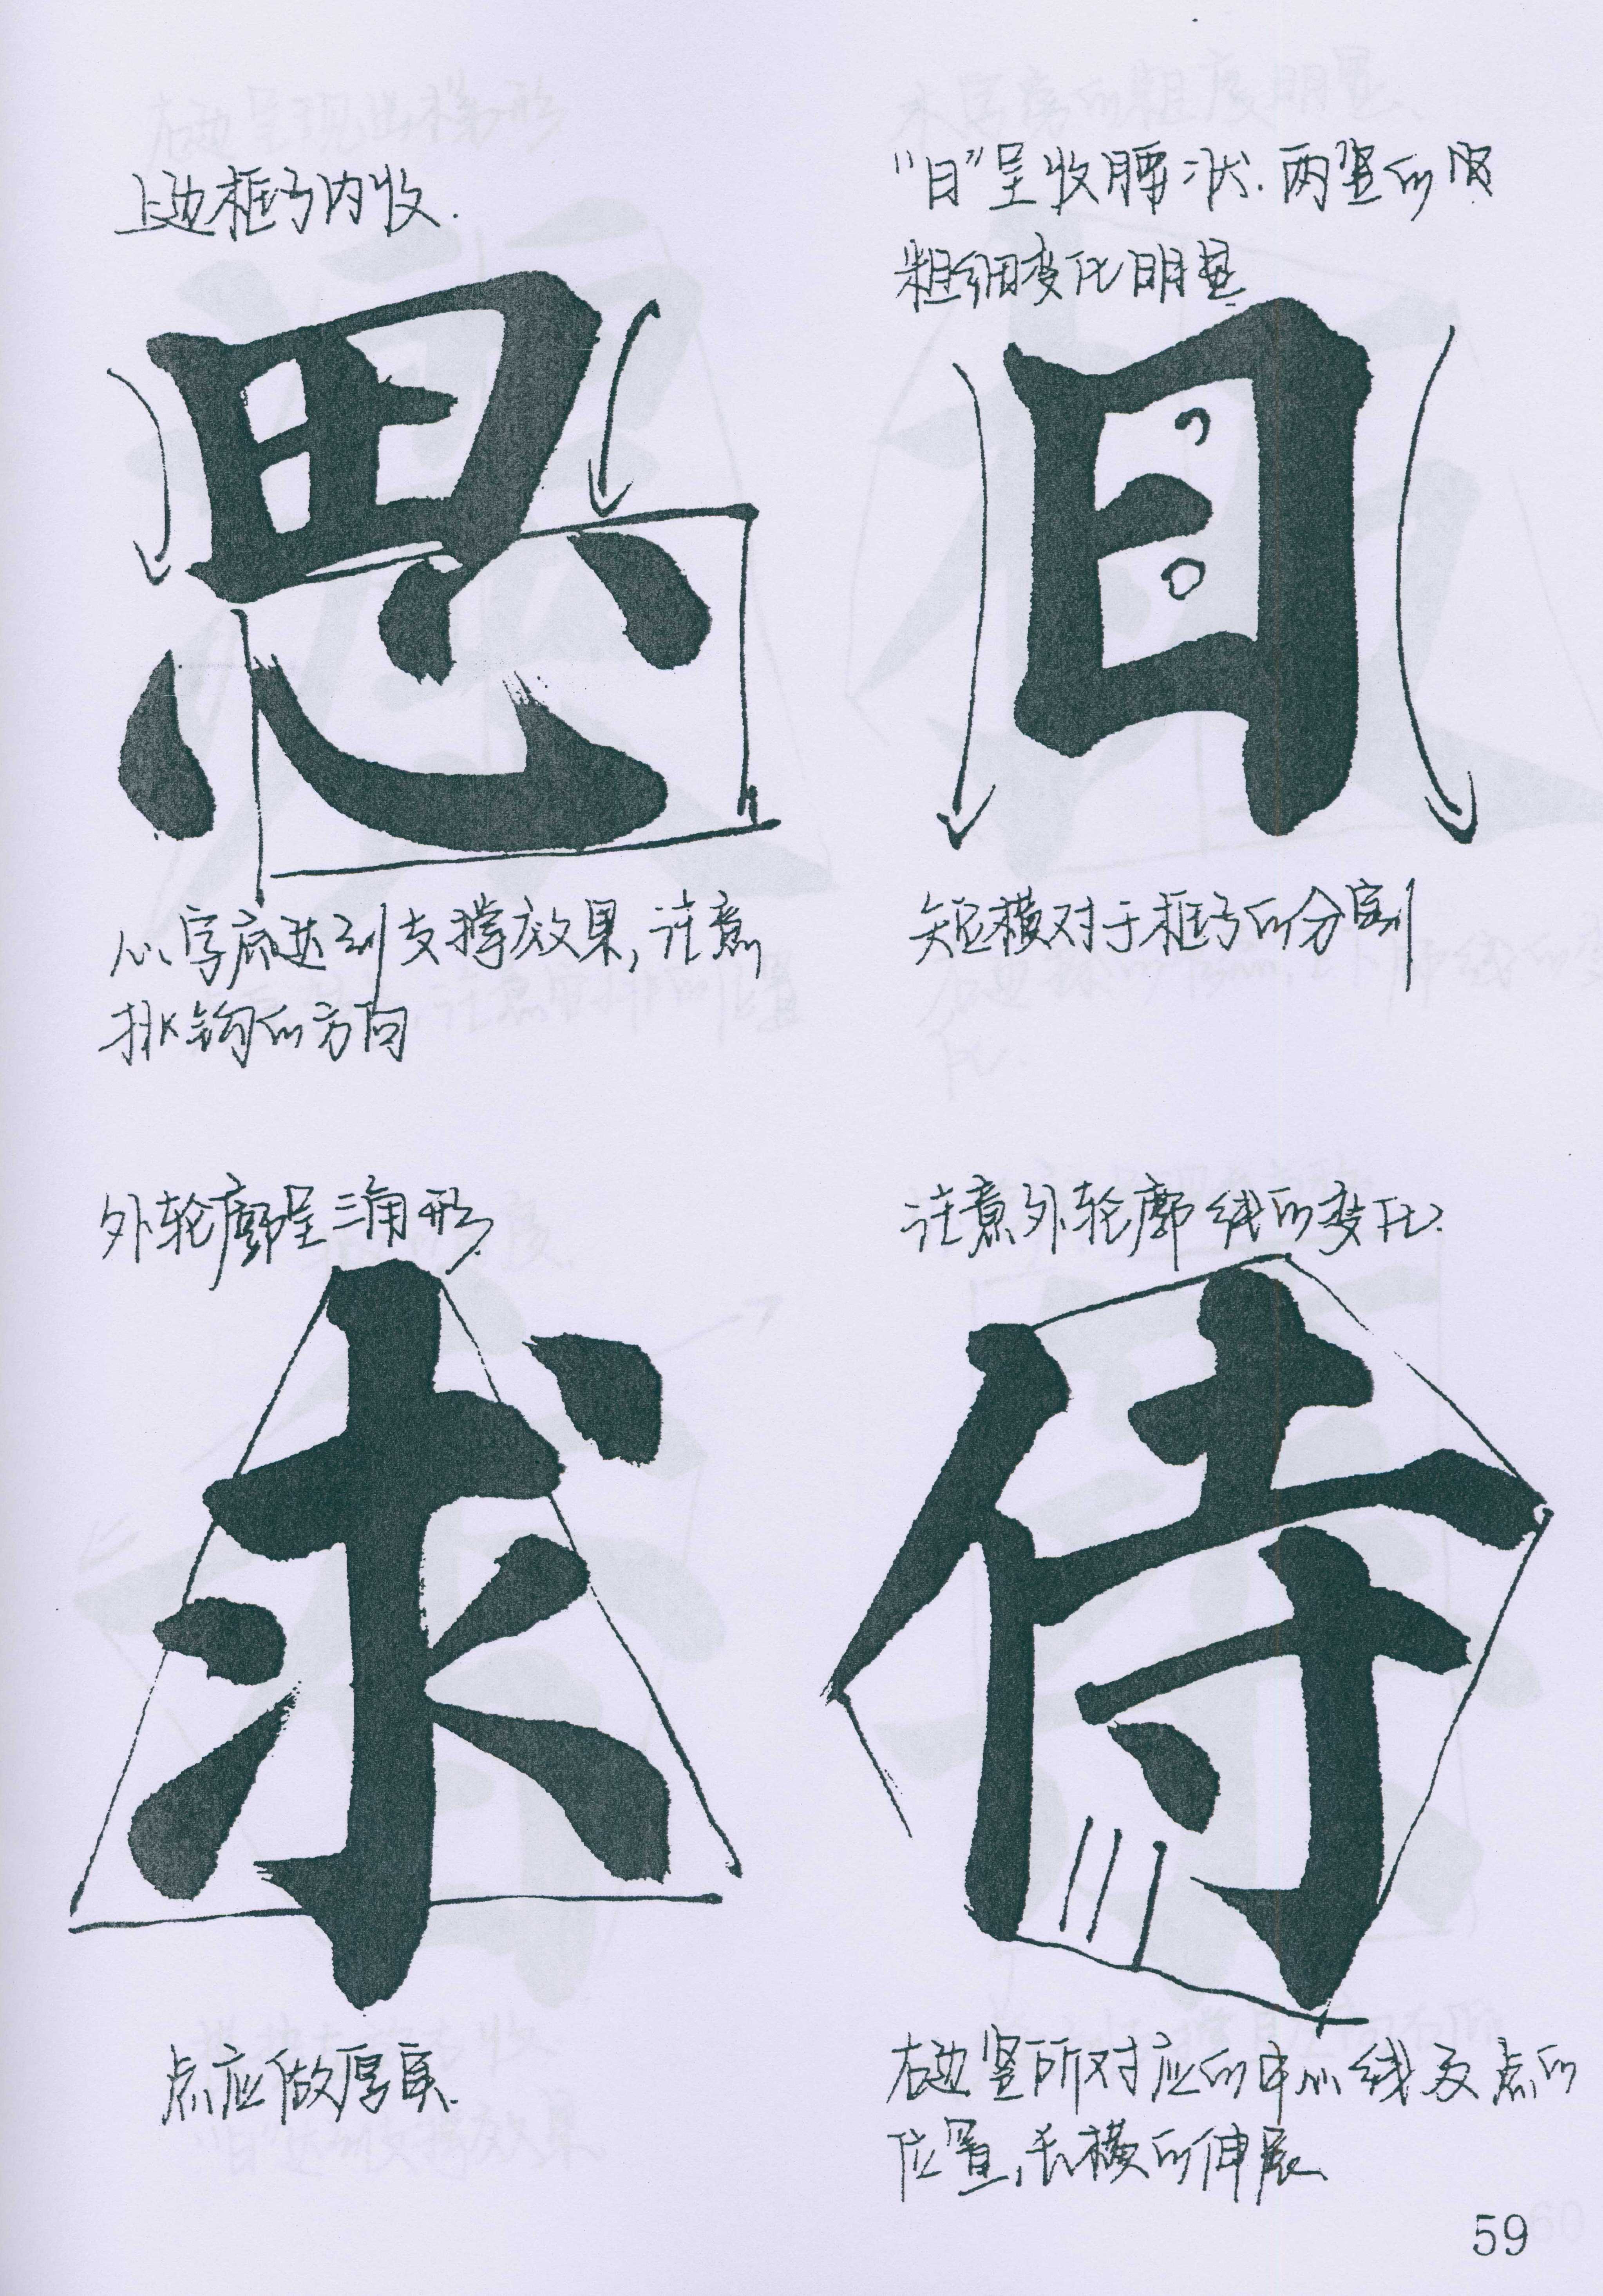 上边框了内收.
思
心字底达到支撑效果,注意
挑钩的方向
"日"呈收腰状.两竖的
粗细变化明显
日
短横对于框了的分割
外轮廓呈三角形.
求
点应做厚实.
注意外轮廓线的变化.
侍
右边竖所对应的中心线及点的
位置,长横的伸展
59